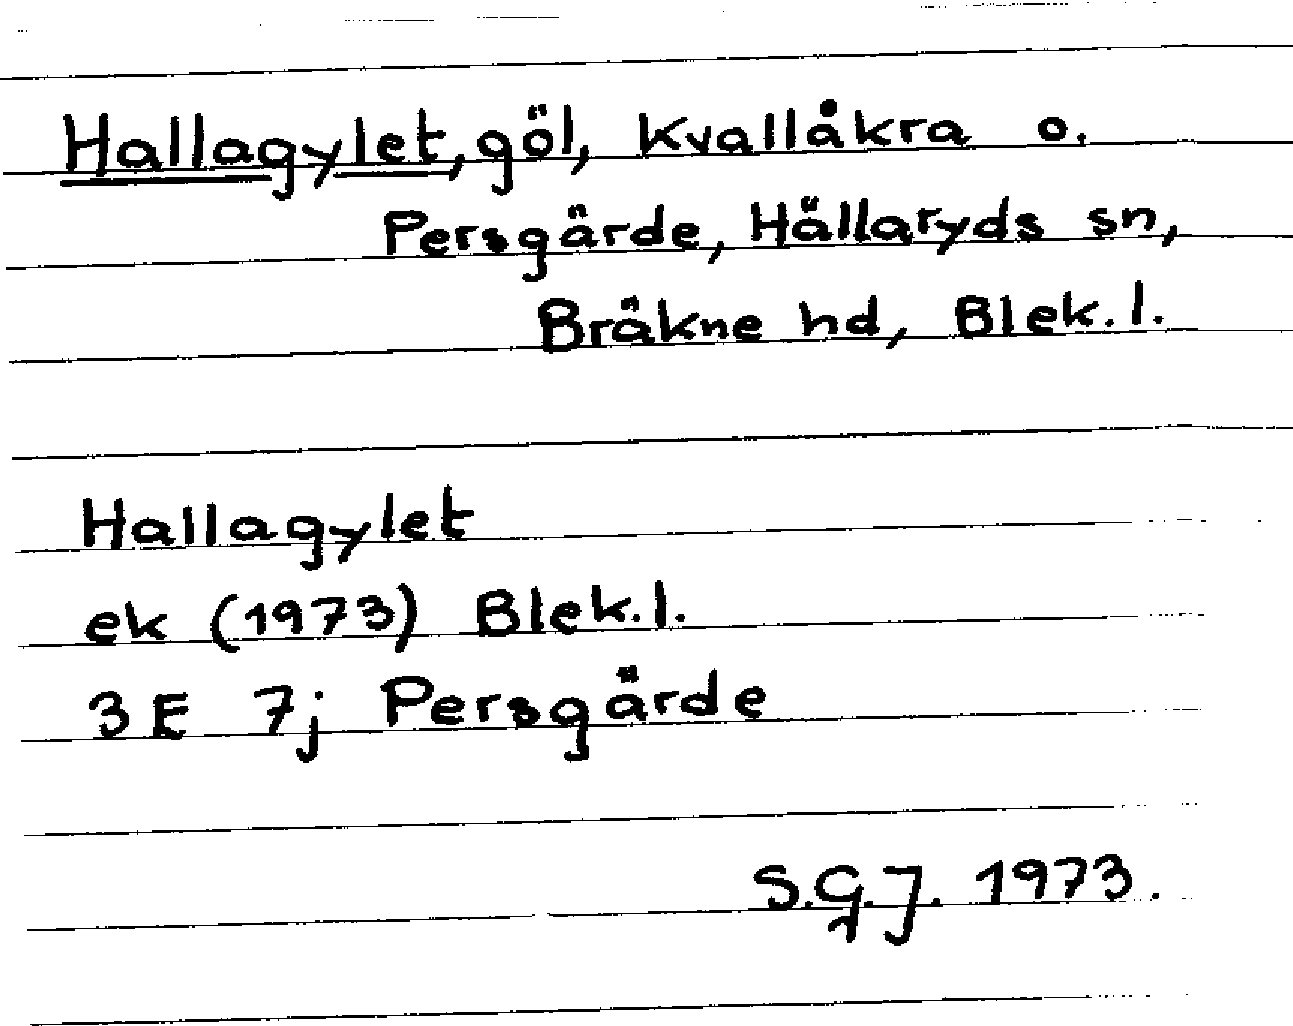 Hallagylet, göl, Kvallåkra o.
Persgärde, Hällaryds sn,
Bräkne hd, Blek. l.
Hallagylet
ek (1973) Blek. l.
3E 7j Persgärde
S.G.J. 1973.